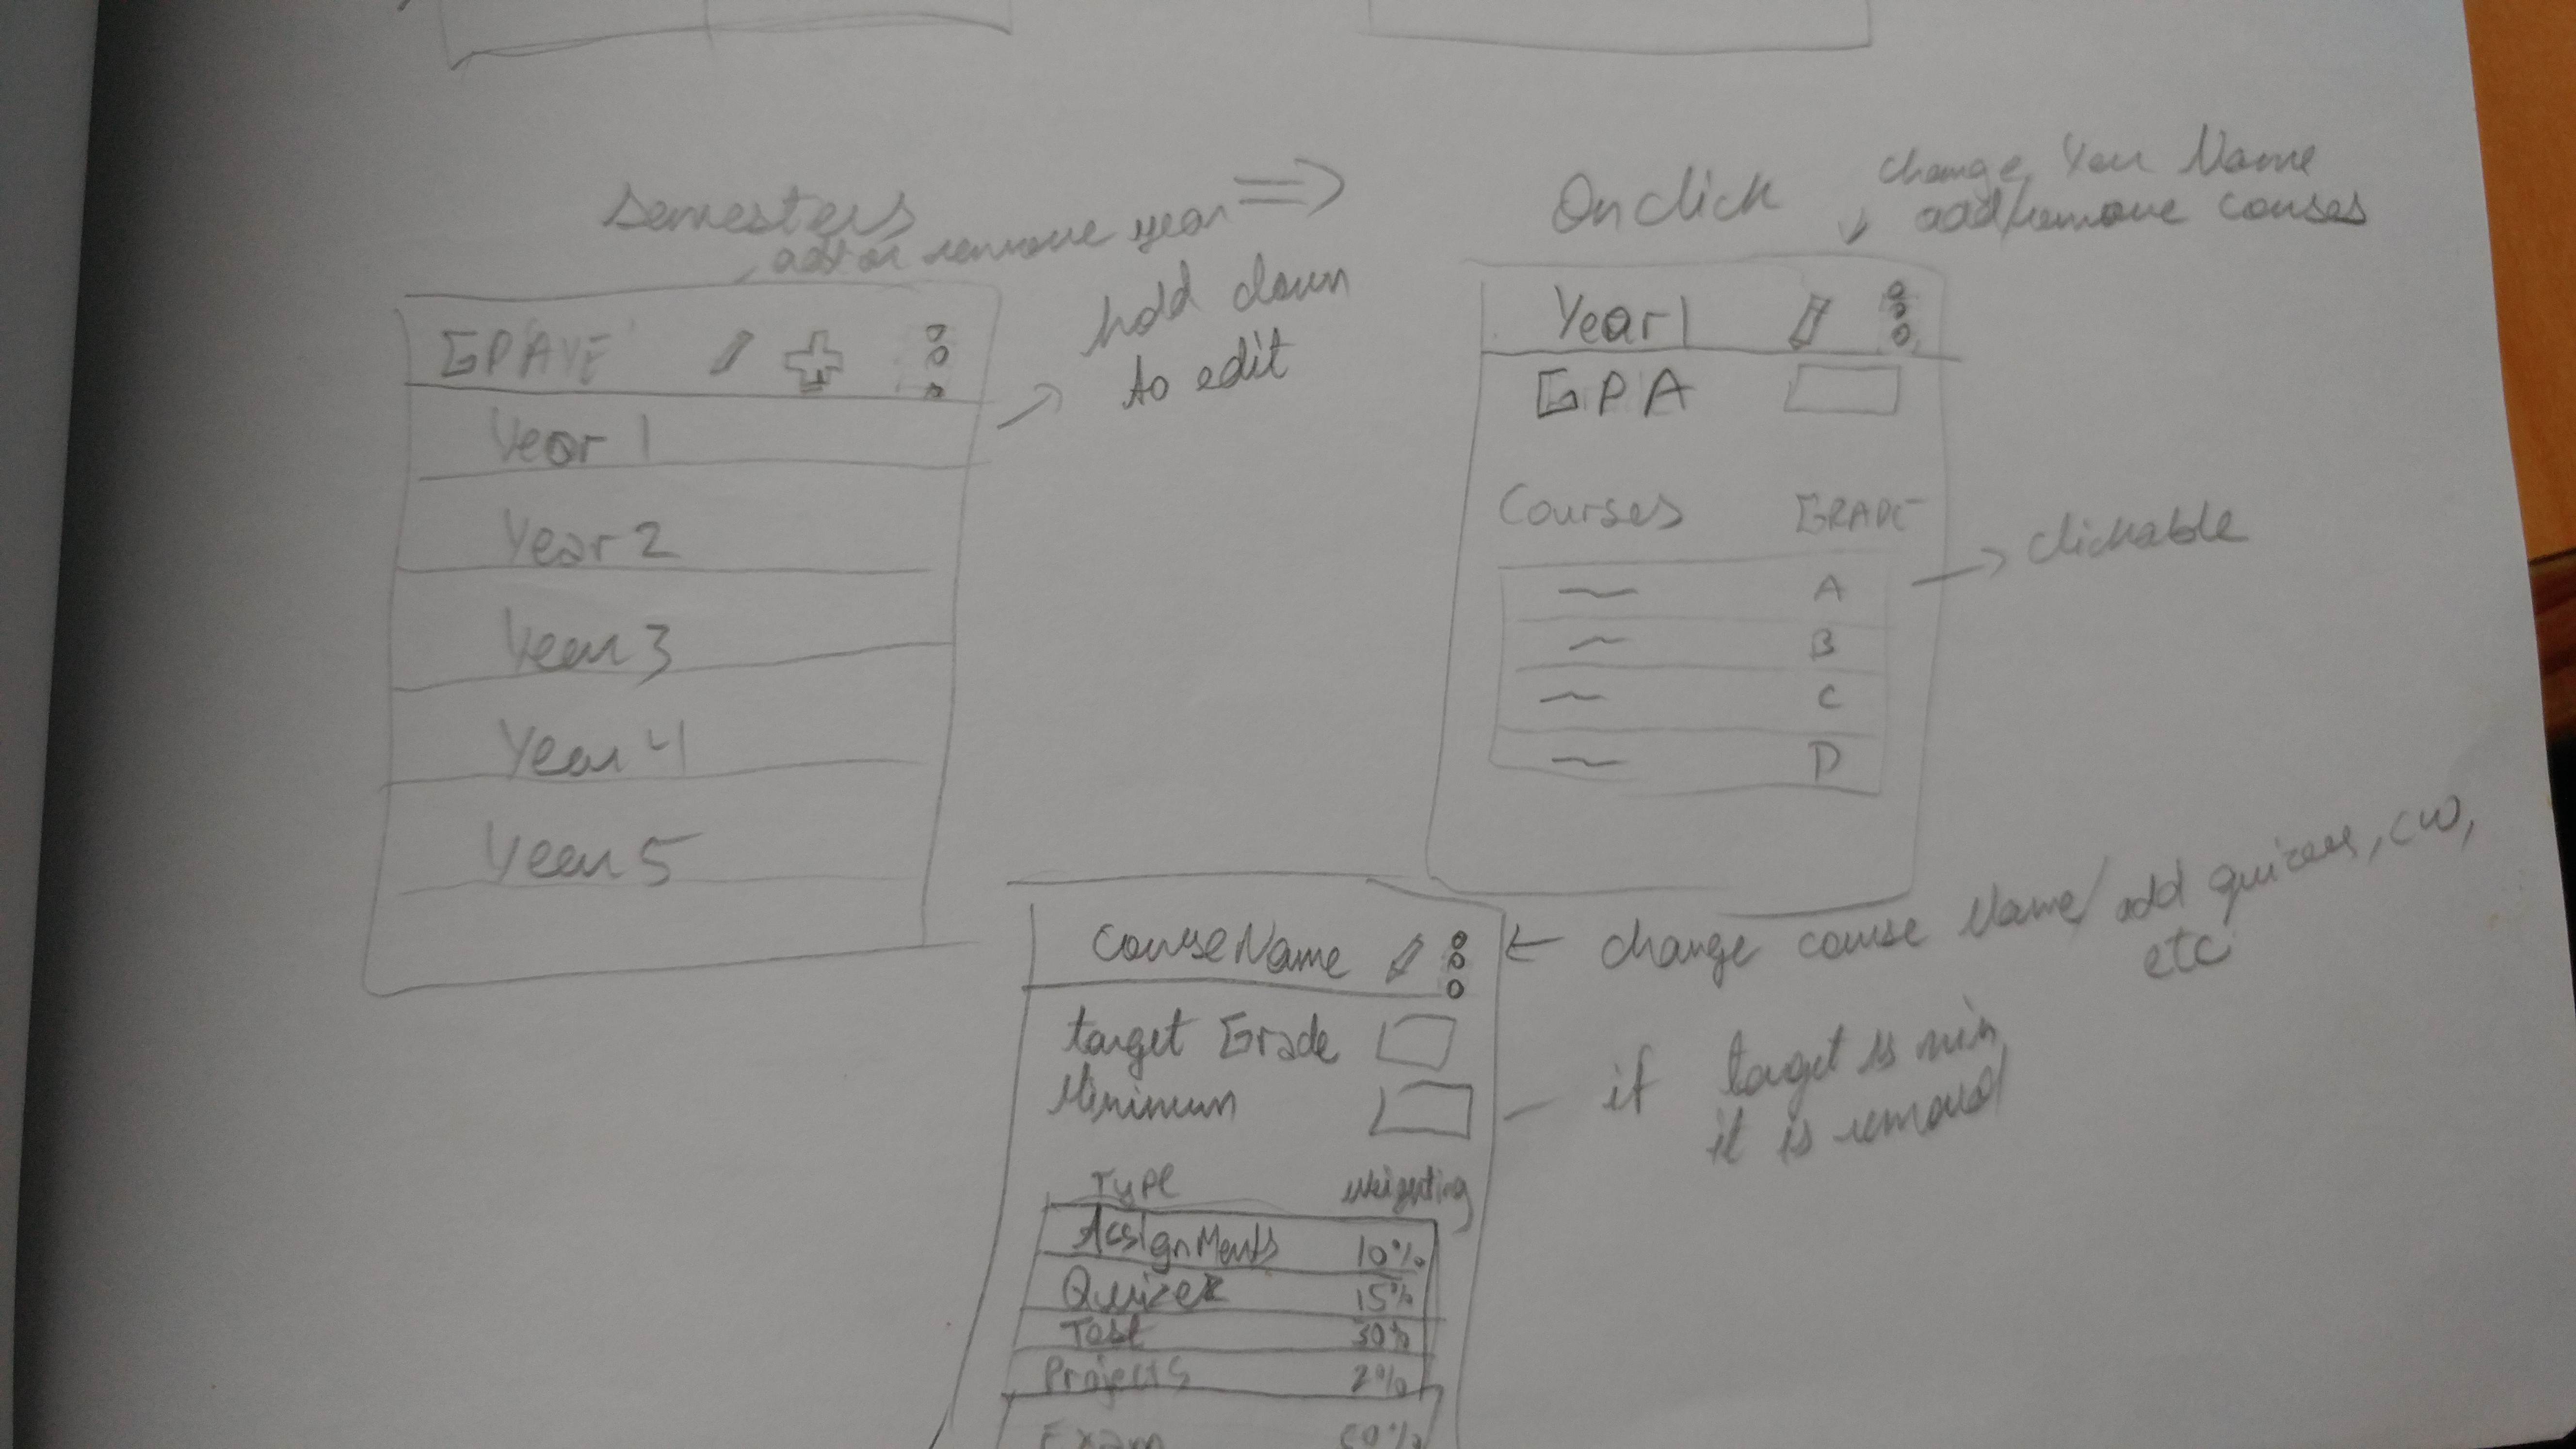 Semesters
add or remove year
hold down
to edit
GPAVE
Year 1
Year 2
Year 3
Year 4
Year 5
On click
change Year Name
add/remove courses
Year 1
GPA
Courses GRADE
A
B
C
D
clickable
Course Name
change course Name/add quizzes, cw,
etc
target Grade
Minimum
if target is min
it is removed
Type weighting
Assignments 10%
Quizez 15%
Test 30%
Projects 2%
Exam 50%